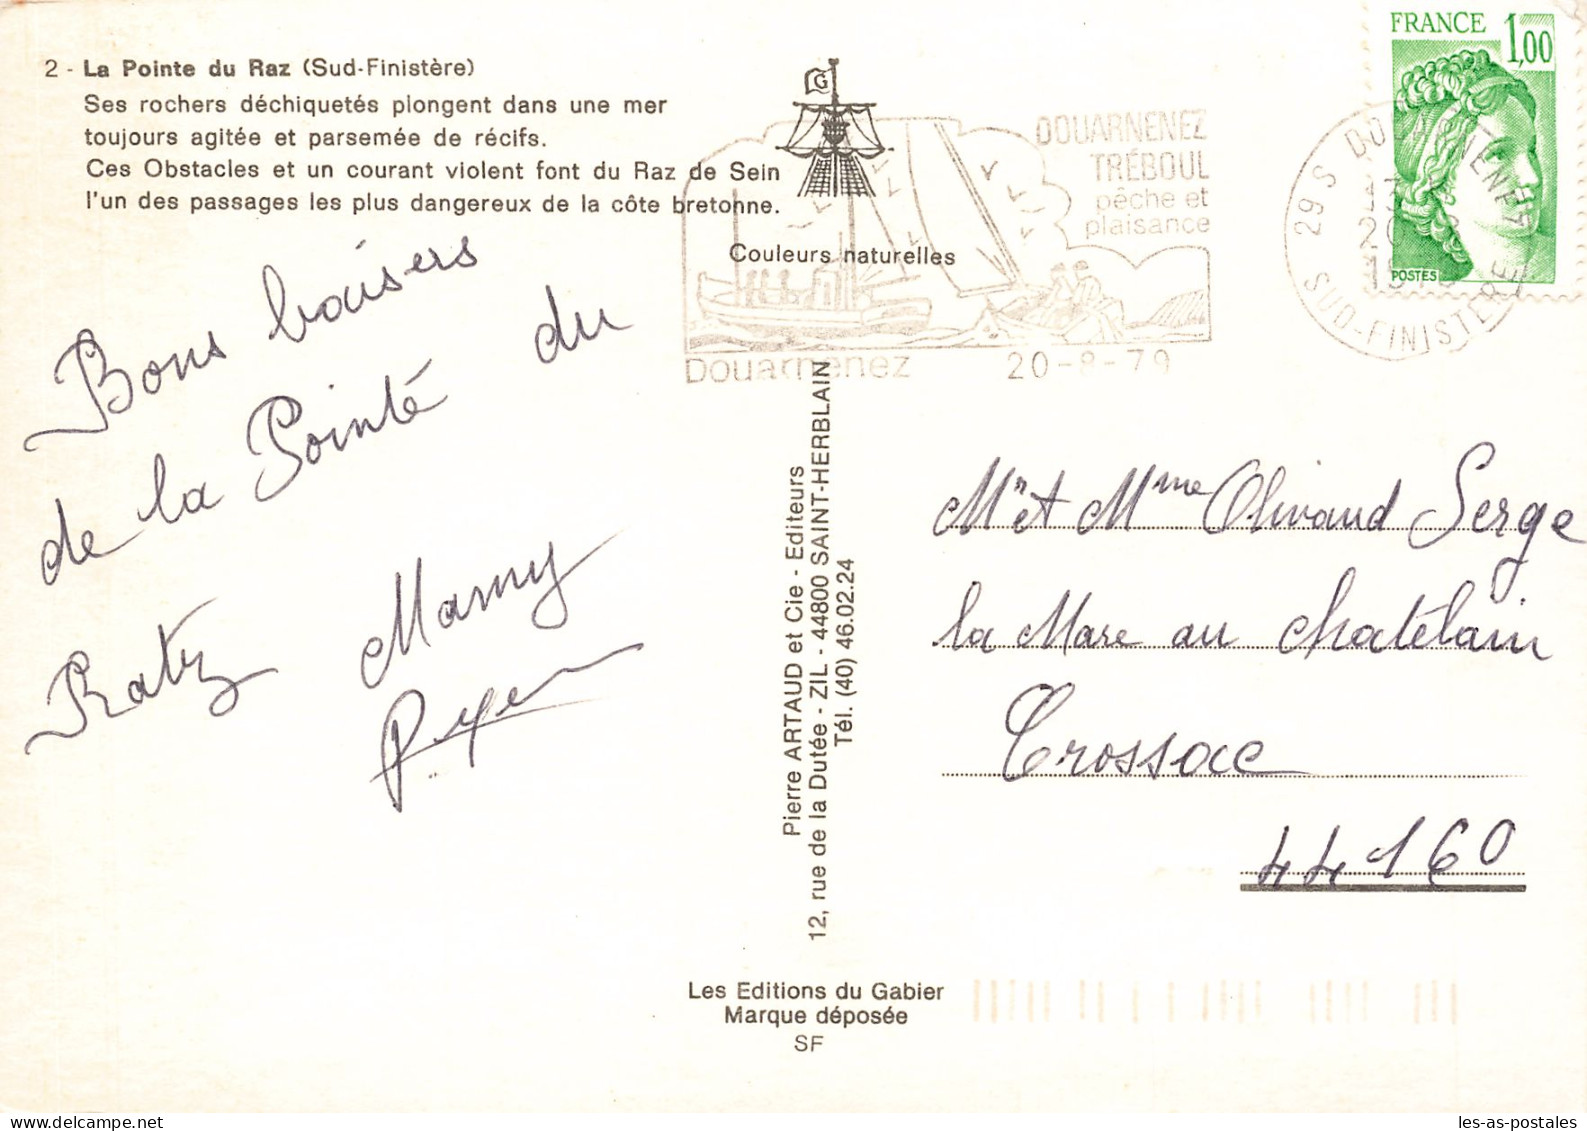 2 - La Pointe du Raz (Sud-Finistère)
Ses rochers déchiquetés plongent dans une mer
toujours agitée et parsemée de récifs.
Ces Obstacles et un courant violent font du Raz de Sein
l'un des passages les plus dangereux de la côte bretonne.
Couleurs naturelles
G
DOUARNENEZ
TRÉBOUL
pêche et
plaisance
Douarnenez 20-8-79
FRANCE 1,00
POSTES
29 S DOUARNENEZ
SUD-FINISTERE
Bons baisers
de la Pointé du
Ratz Mamy
Pierre ARTAUD et Cie - Editeurs
12, rue de la Dutée - ZIL - 44800 SAINT-HERBLAIN
Tél. (40) 46.02.24
Mr et Mme Olivaud Serge
la Mare au Chatêlain
Crossac
44160
Les Editions du Gabier
Marque déposée
SF
les-as-postales